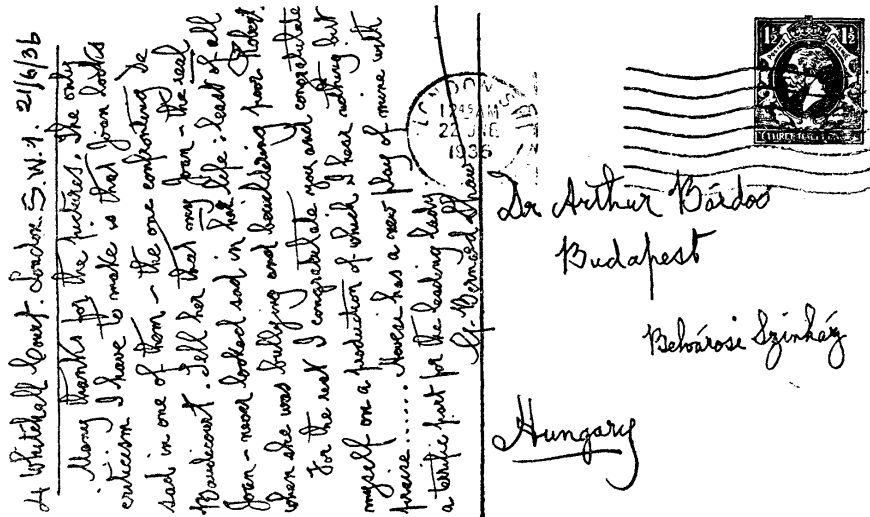 4 Whitehall Court. London S.W.1. 21/6/36
Many thanks for the pictures. The only
criticism I have to make is that Joan looks
sad in one of them – the one confronting de
Baudicourt. Tell her that my Joan – the real
Joan – never looked sad in her life: least of all
when she was bullying and bewildering poor Robert.
For the rest I congratulate you and congratulate
myself on a production of which I hear nothing but
praise..... Hevesi has a new play of mine with
a terrific part for the leading lady.
G. Bernard Shaw
LONDON S.W.1
12 45 AM
22 JNE
1936
1½ 1½
Dr Arthur Bárdos
Budapest
Belvárosi Szinház
Hungary